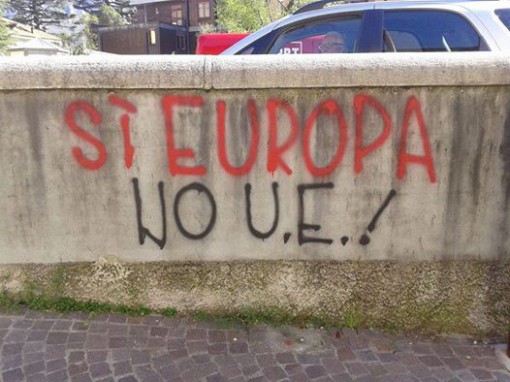 SÌ EUROPA
NO U.E.!